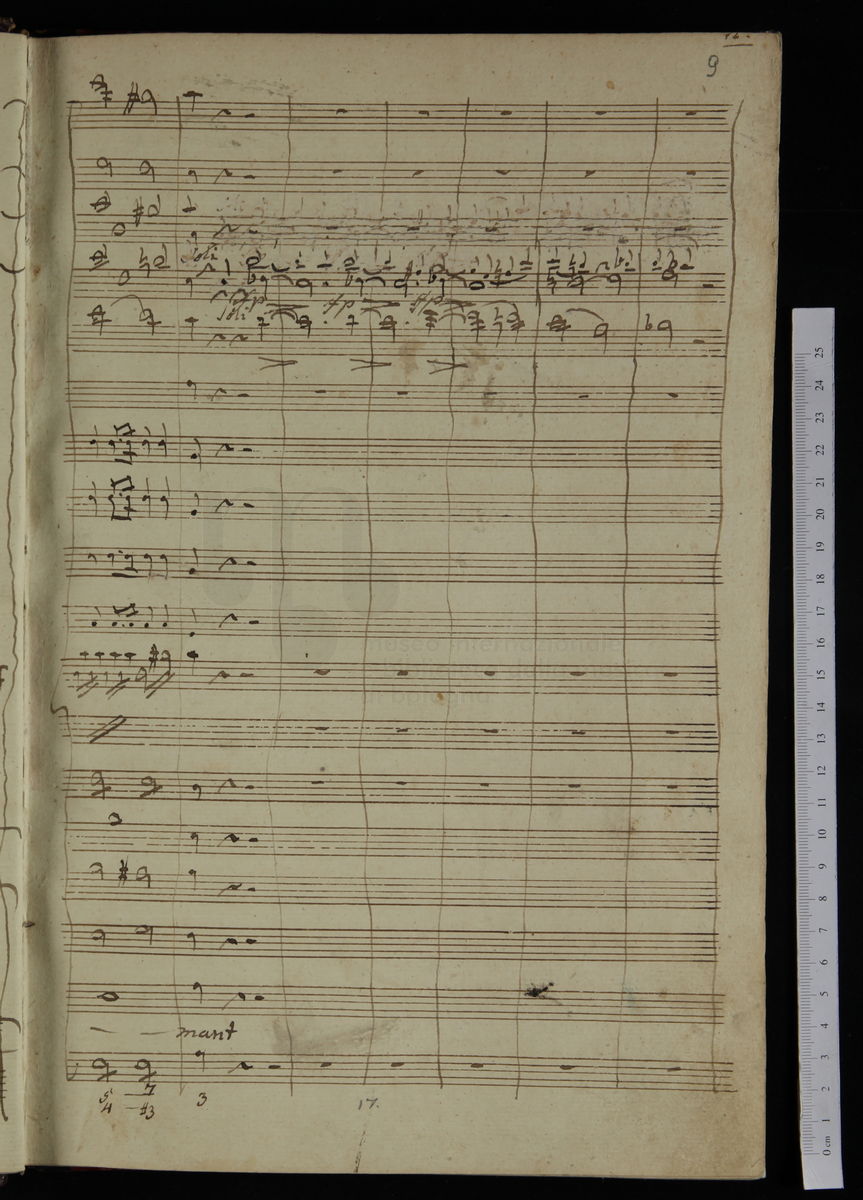 9
Soli
fp fp fp
Soli
museo internazionale
bologna
mant
5 7
4 #3 3
17.
25
24
23
22
21
20
19
18
17
16
15
14
13
12
11
10
9
8
7
6
5
4
3
2
1
0 cm